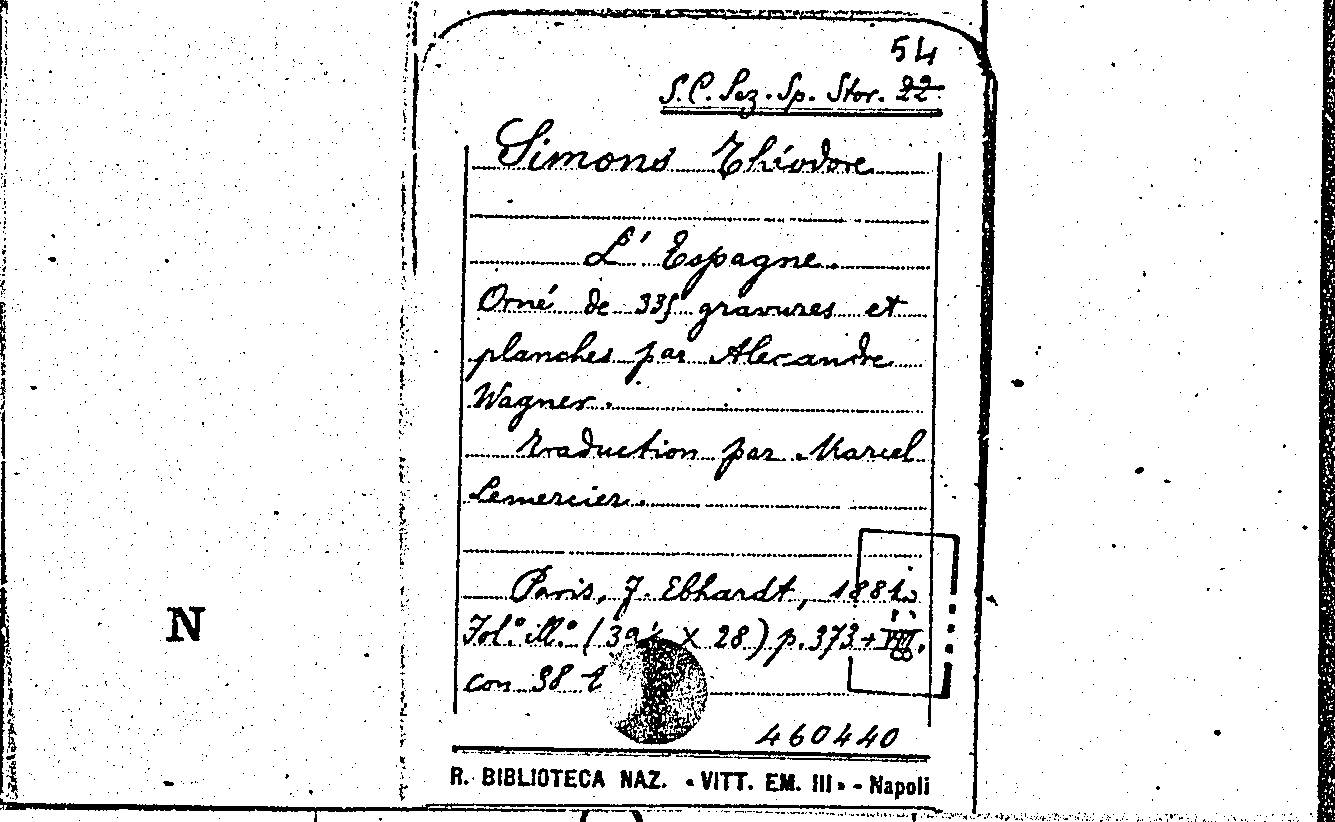 54
S.C. Sez. Sp. Stor. 22
Simons Théodore
L' Espagne.
Orné de 335 gravures et
planches par Alexandre
Wagner.
Traduction par Marcel
Lemercier.
Paris, J. Ebhardt, 1881.
Fol.° ill.° (39½ X 28) p. 373 + VIII.
con 38 t
N
460440
R. BIBLIOTECA NAZ. «VITT. EM. III» - Napoli